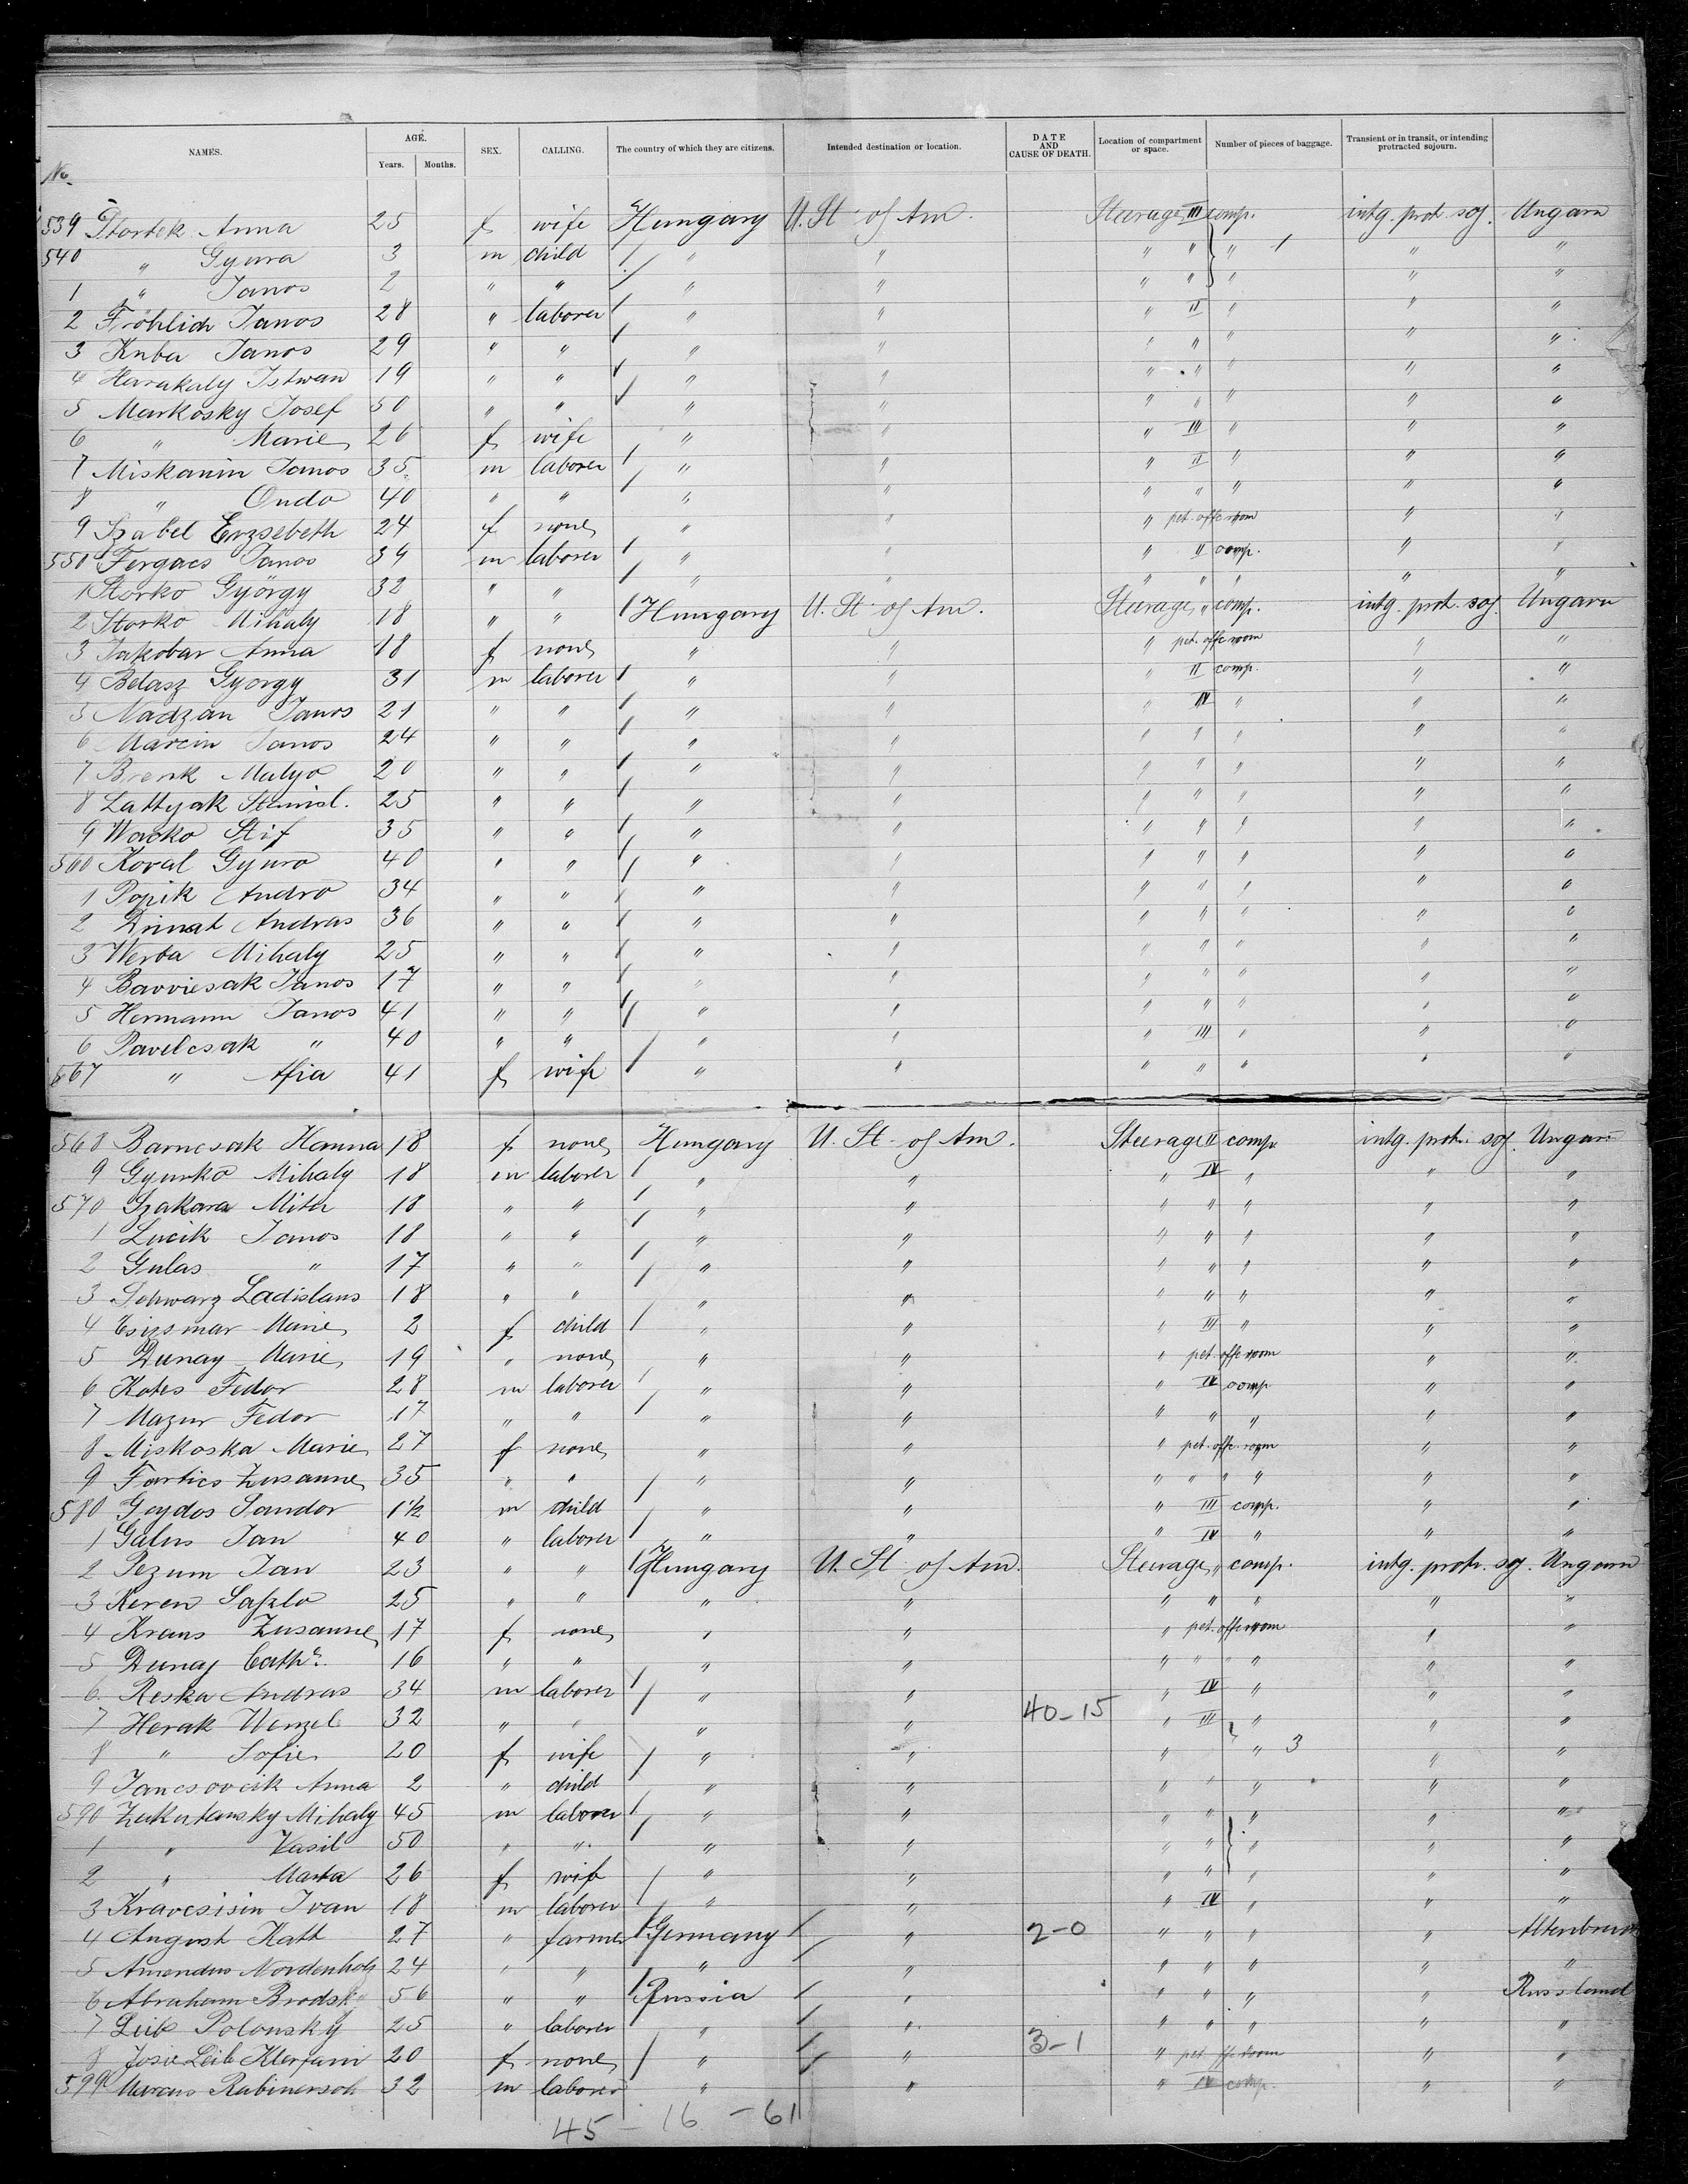 NAMES. AGE. Years. Months. SEX. CALLING. The country of which they are citizens. Intended destination or location. DATE AND CAUSE OF DEATH. Location of compartment or space. Number of pieces of baggage. Transient or in transit, or intending protracted sojourn.
No.
539 Anna 25 f wife Hungary U. St. of Am. Steerage III comp. intg. prot. soj. Ungarn
540 " Gyura 3 m child " " " " } " 1 " "
1 " Janos 2 " " " " " " " " "
2 Fröhlich Janos 28 " laborer " " " II " " "
3 Kuba Janos 29 " " " " " " " " "
4 Harakaly Istwan 19 " " " " " " " " "
5 Markosky Josef 50 " " " " " " " " "
6 " Marie 26 f wife " " " III " " "
7 Miskanin Janos 35 m laborer " " " II " " "
8 " Ondo 40 " " " " " " " " "
9 Szabel Erzsebeth 24 f none " " " pet. offc room " "
550 Fergacs Janos 39 m laborer " " " II comp. " "
1 Storko György 32 " " " " " " " " "
2 Storko Mihaly 18 " " Hungary U. St. of Am. Steerage " comp. intg. prot. soj. Ungarn
3 Jakobar Anna 18 f none " " " pet. offc room " "
4 Belasz György 31 m laborer " " " II comp. " "
5 Nadzan Janos 21 " " " " " IV " " "
6 Marcin Janos 24 " " " " " " " " "
7 Brenk Matyo 20 " " " " " " " " "
8 Lattyak Stanisl. 25 " " " " " " " " "
9 Wacko Stif 35 " " " " " " " " "
560 Koval Gyuro 40 " " " " " " " " "
1 Popik Andro 34 " " " " " " " " "
2 Andras 36 " " " " " " " " "
3 Werba Mihaly 25 " " " " " " " " "
4 Janos 17 " " " " " " " " "
5 Hermann Janos 41 " " " " " " " " "
6 Pavelcsak " 40 " " " " " III " " "
567 " Afia 41 f wife " " " " " " "
568 Barncsak Hanna 18 f none Hungary U. St. of Am. Steerage II comp. intg. prot. soj. Ungarn
9 Gyurko Mihaly 18 m laborer " " " IV " " "
570 Szakara 18 " " " " " " " " "
1 Lucik Janos 18 " " " " " " " " "
2 Gulas " 17 " " " " " " " " "
3 Schwarz Ladislaus 18 " " " " " " " " "
4 Csizsmar Marie 2 f child " " " III " " "
5 Dunay Marie 19 " none " " " pet. offc room " "
6 Kotes Fedor 28 m laborer " " " IV comp " "
7 Mazur Fedor 17 " " " " " " " " "
8 Miskoska Marie 27 f none " " " pet. offc. room " "
9 Fartics Zusanne 35 " " " " " " " " " "
580 Geydos Sandor 1½ m child " " " III comp. " "
1 Galus Jan 40 " laborer " " " IV " " "
2 Pezum Jan 23 " " Hungary U. St. of Am. Steerage " comp. intg. prot. soj. Ungarn
3 Keren Laszlo 25 " " " " " " " " "
4 Kraus Zusanne 17 f none " " " pet. offc room " "
5 Dunay Cathe. 16 " " " " " " " " " "
6 Reska Andras 34 m laborer " " " IV " " "
7 Herak Wenzel 32 " " " " 40-15 " III } " " "
8 " Sofie 20 f wife " " " " 3 " "
9 Jancsovcik Anna 2 " child " " " " " " "
590 Zakutansky Mihaly 45 m laborer " " " " " " "
1 " Vasil 50 " " " " " " } " " "
2 " Marta 26 f wife " " " " " " "
3 Kravcsisin Ivan 18 m laborer " " " IV " " "
4 August Kath 27 " farmer Germany " 2-0 " " " " Altenbruch
5 Amendus Nordenholz 24 " " " " " " " " "
6 Abraham Brodsk 56 " " Russia " " " " " Russland
7 Leib Polonsky 25 " laborer " " " " " " "
8 Josie Leib 20 f none " " 3-1 " pet. offc room " "
599 Marcus Rabinersoh 32 m laborer " " " IV comp. " "
45 - 16 - 61